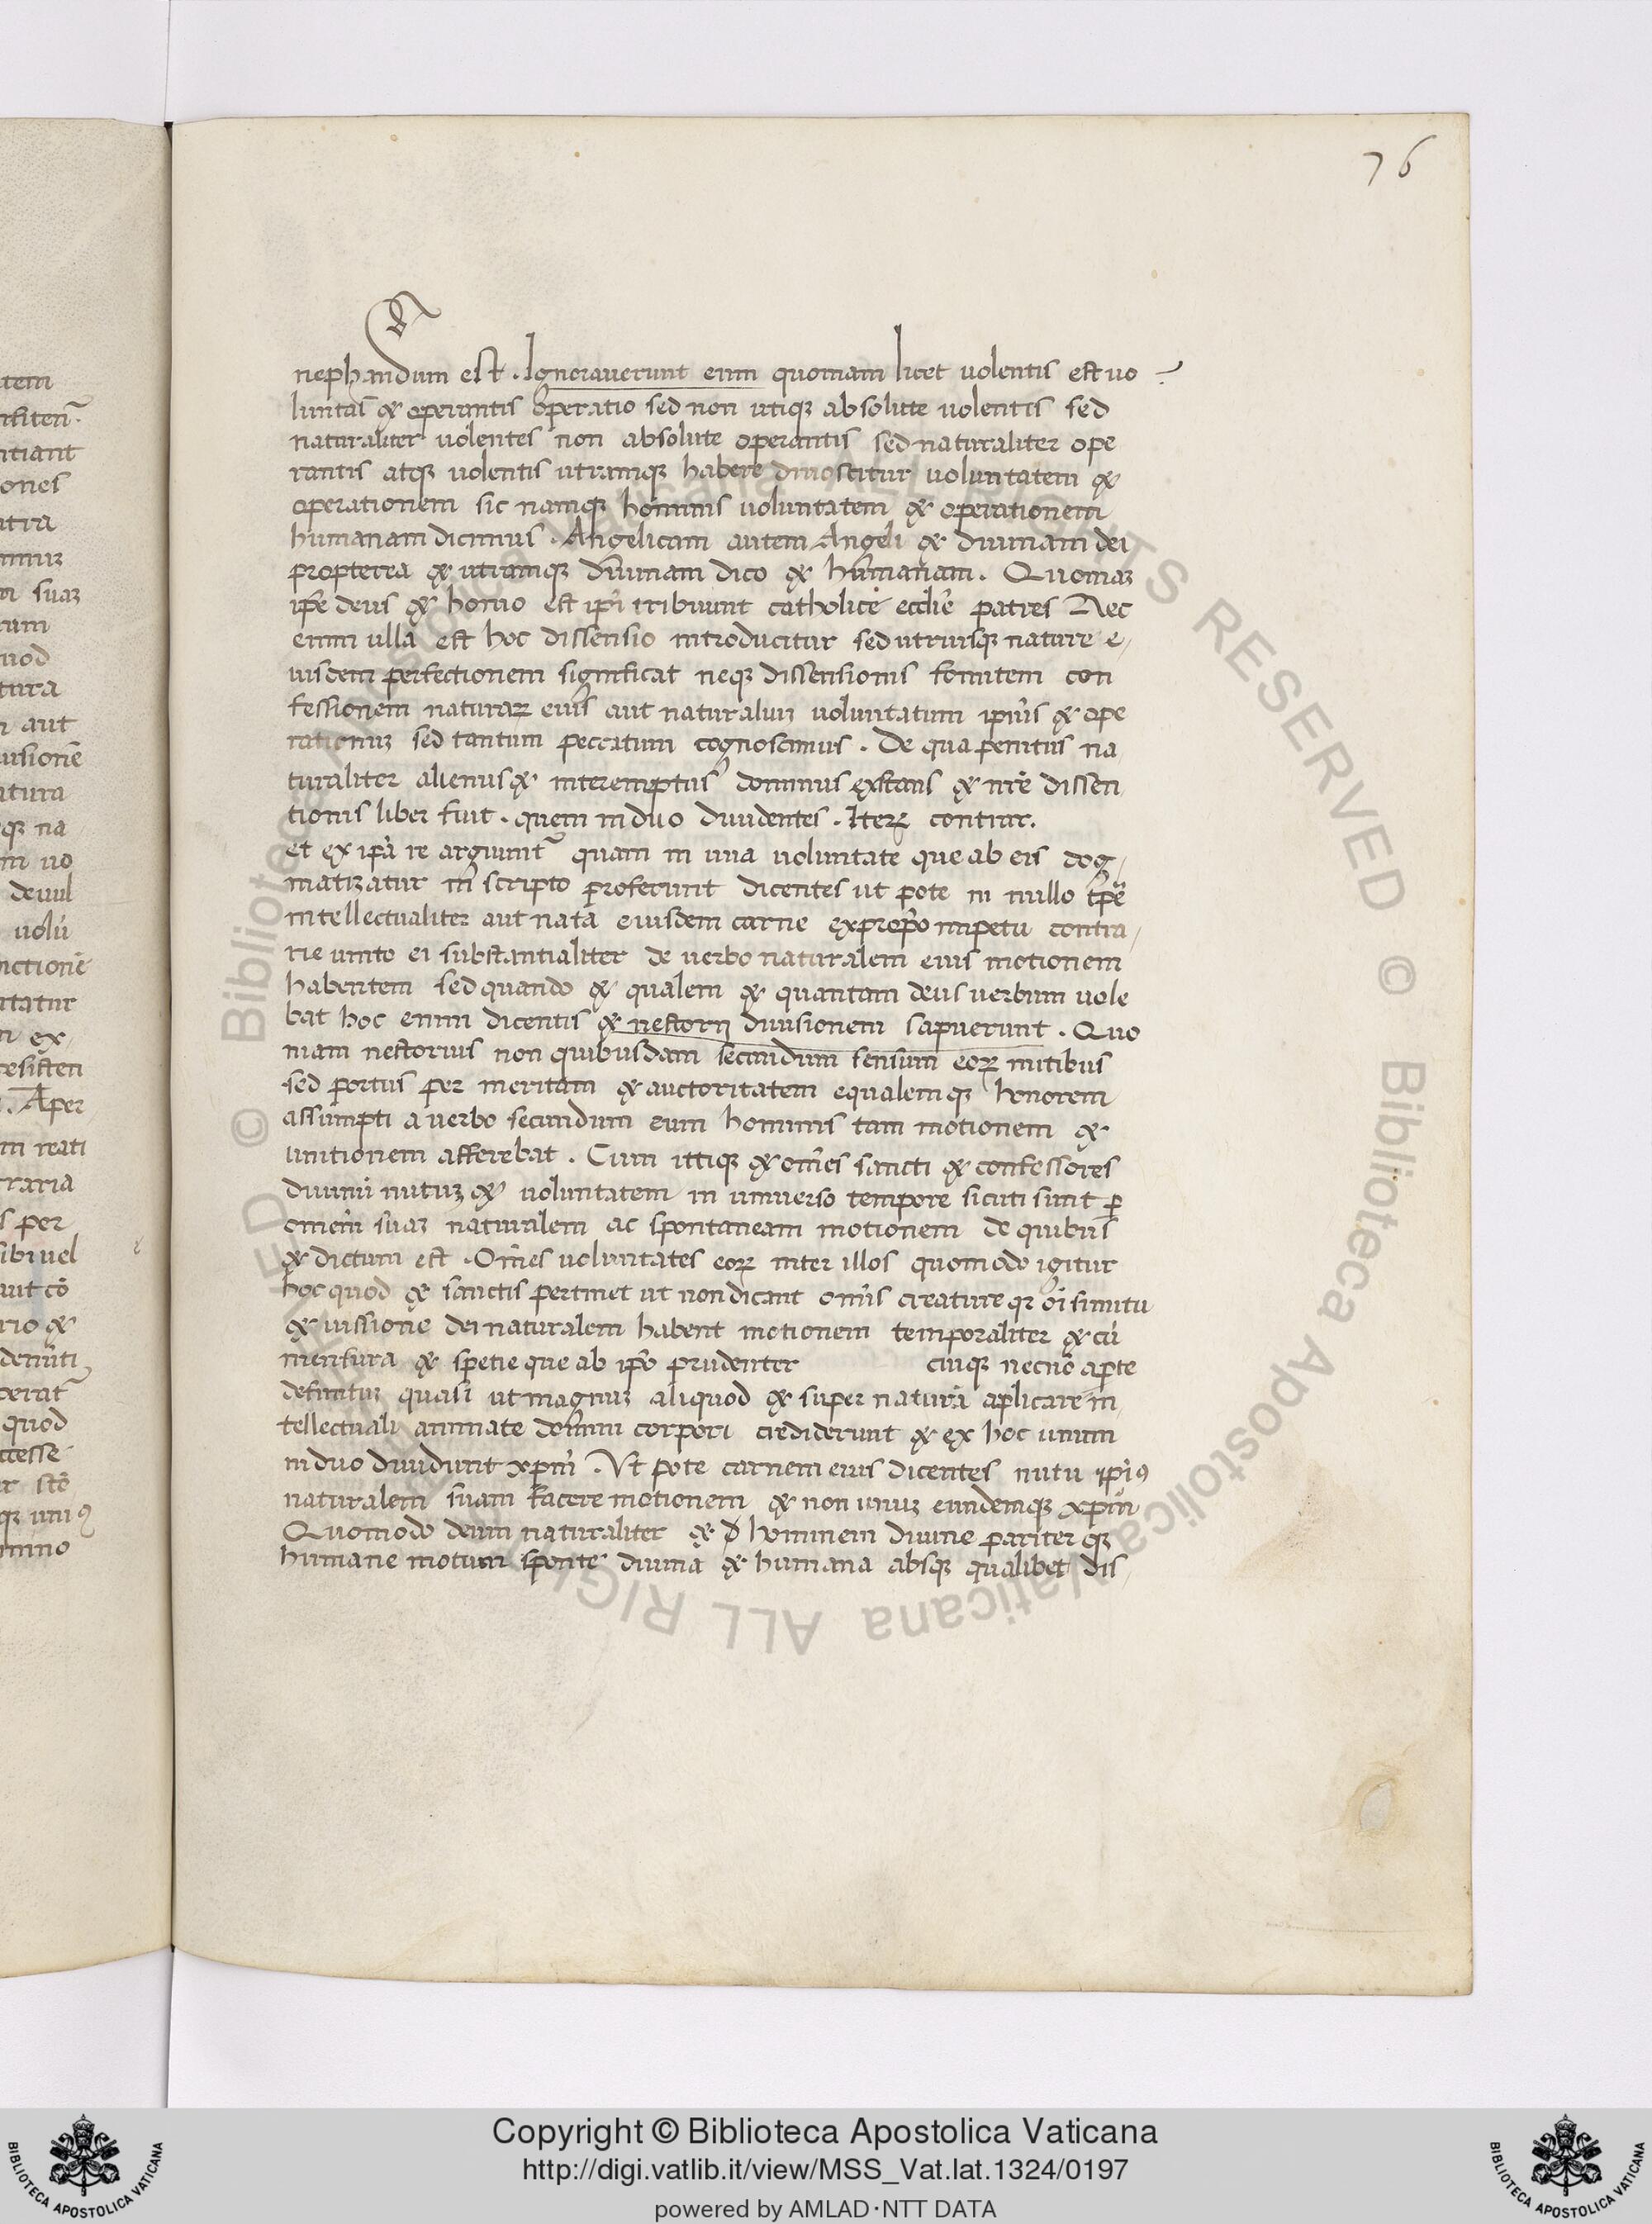 76
nephandum est . Ignorauerunt enim quoniam licet uolentis est uo
luntas & operantis operatio sed non utiqꝫ absolute uolentis sed
naturaliter uolentes non absolute operantis sed naturaliter ope
rantis atqꝫ uolentis utramqꝫ habere dinoscitur uoluntatem &
operationem sic namqꝫ hominis uoluntatem & operationem
humanam dicimus . Angelicam autem Angeli & diuinam dei
propterea & utramqꝫ diuinam dico & humanam . Quoniaꝫ
ipse deus & homo est ipī tribuunt catholicē ecclīe patres Nec
enim ulla est hoc dissensio introducitur sed utriusqꝫ nature e
iusdem perfectionem significat neqꝫ dissensionis fomitem con
fessionem naturaꝝ eius aut naturaliuꝫ uoluntatum ipīus & ope
rationuꝫ sed tantum peccatum cognoscimus . De qua penitus na
turaliter alienus & interemptus dominus exstans & nrē dissen
tionis liber fuit . quem in duo diuidentes . Iteꝝ contrar.
et ex ipā re arguunt̄ quam in una uoluntate que ab eis dog
matizatur in scripto proferunt dicentes ut pote in nullo tpē
intellectualiter aut natā eiusdem carne ex propō impetu contra
rie unito ei substantialiter de uerbo naturalem eius motionem
habentem sed quando & qualem & quantam deus uerbum uole
bat hoc enim dicentis & nestorij diuisionem sapuerunt . Quo
niam nestorius non quibusdam secundum sensum eoꝝ nutibus
sed portus per meritam & auctoritatem equalemqꝫ honorem
assumpti a uerbo secundum eum hominis tam motionem &
unitionem afferebat . Cum ittiqꝫ & omēs sancti & confessores
diuinū nutuꝫ & uoluntatem in uniuerso tempore sicuti sunt ꝑ
omem̄ suaꝫ naturalem ac spontaneam motionem de quibus
& dictum est . Omēs uoluntates eoꝝ inter illos quomodo igitur
hoc quod & sanctis pertinet ut non dicant omīs creature qꝫ oī simitu
& uissione dei naturalem habent motionem temporaliter & cū
mensura & spetie que ab ipō prudenter cuiqꝫ necnō aperte
definituꝫ quasi ut magnuꝫ aliquod & super naturā aplicare in
tellectuali animate domini corpori crediderunt & ex hoc unum
in duo diuidunt xpm̄ . Ut pote carnem eius dicentes nutu ipīꝰ
naturalem suam facere motionem & non unuꝫ eundemqꝫ xpm̄
Quomodo deum naturaliter & hominem diuine pariterqꝫ
humane motum sponte diuina & humana absqꝫ qualibet dis
Copyright © Biblioteca Apostolica Vaticana
http://digi.vatlib.it/view/MSS_Vat.lat.1324/0197
powered by AMLAD·NTT DATA